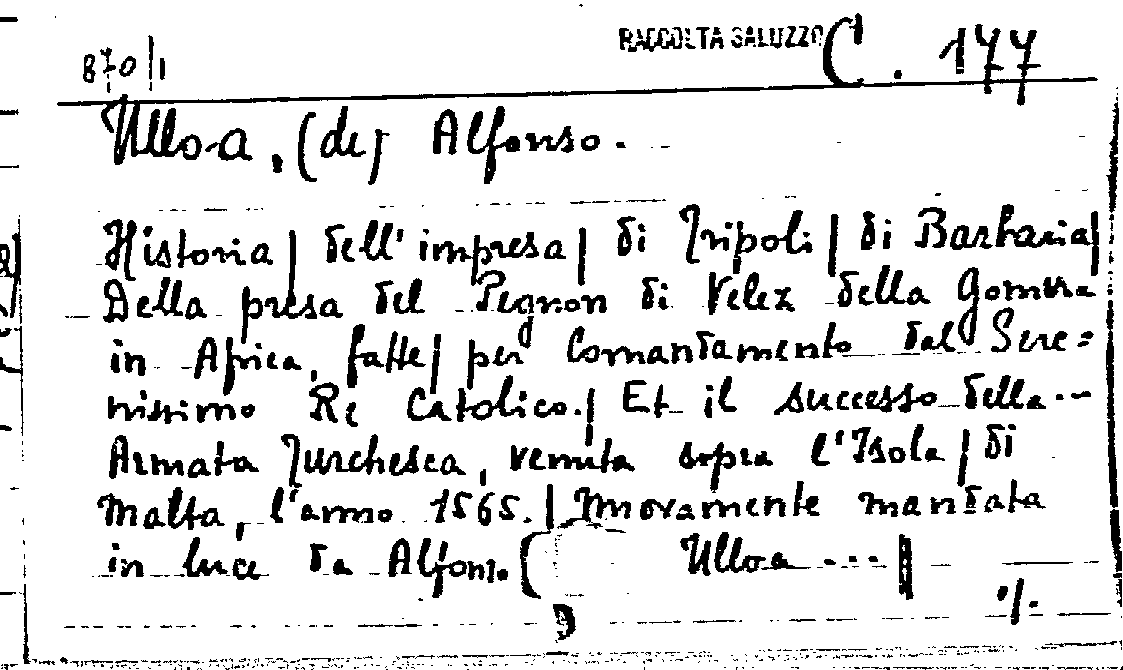 870/1
RACCOLTA SALUZZO C. 177
Ulloa, (de) Alfonso.
Historia| dell'impresa| di Tripoli| di Barbaria|
Della presa del Pegnon di Velez della Gomera
in Africa, fatte| per Comandamento del Sere=
nissimo Re Catolico.| Et il successo della
Armata Turchesca, venuta sopra l'Isola| di
Malta, l'anno 1565.| Nuovamente mandata
in luce da Alfon. Ulloa ...||
./.